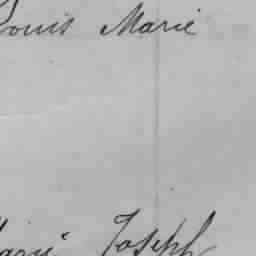 Louis Marie
Marie Joseph